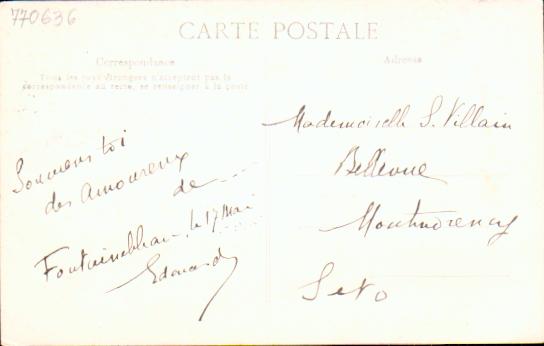 770636
CARTE POSTALE
Correspondance
Tous les pays étrangers n'acceptent pas la
correspondance au recto, se renseigner à la poste
Souviens toi
des Amoureux
de ---
Fontainebleau le 17 Mai
Edouard
Adresse
Mademoiselle S. Villain
Bellevue
Montmorency
S et O